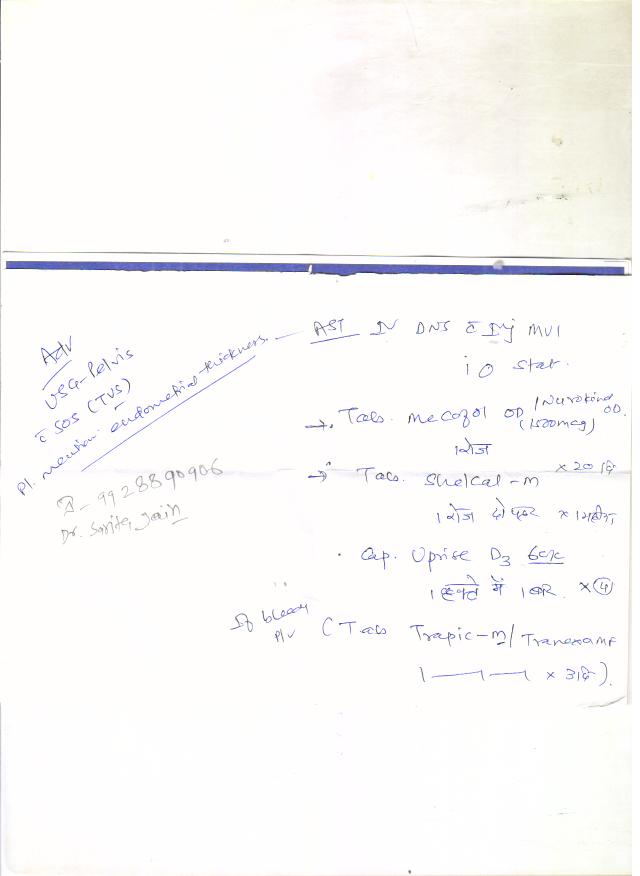 Adv
USG-Pelvis
c̄ SOS (TVS)
Pl. mention endometrial thickness.
9928890906
Dr. Jain
AST IV DNS c̄ Inj MVI
stat.
→ Tab. Mecozol OD / Nurokind OD
(1500mcg)
1 रोज × 20 दि
→ Tab. Shelcal-M
1 रोज दोपहर × 1 महीना
Cap. Uprise D3 60K
1 हफ्ते में 1 बार × 4
If bleeding P/V (Tab Trapic-m / Tranexa MF
1 —— 1 —— 1 × 3 दि).